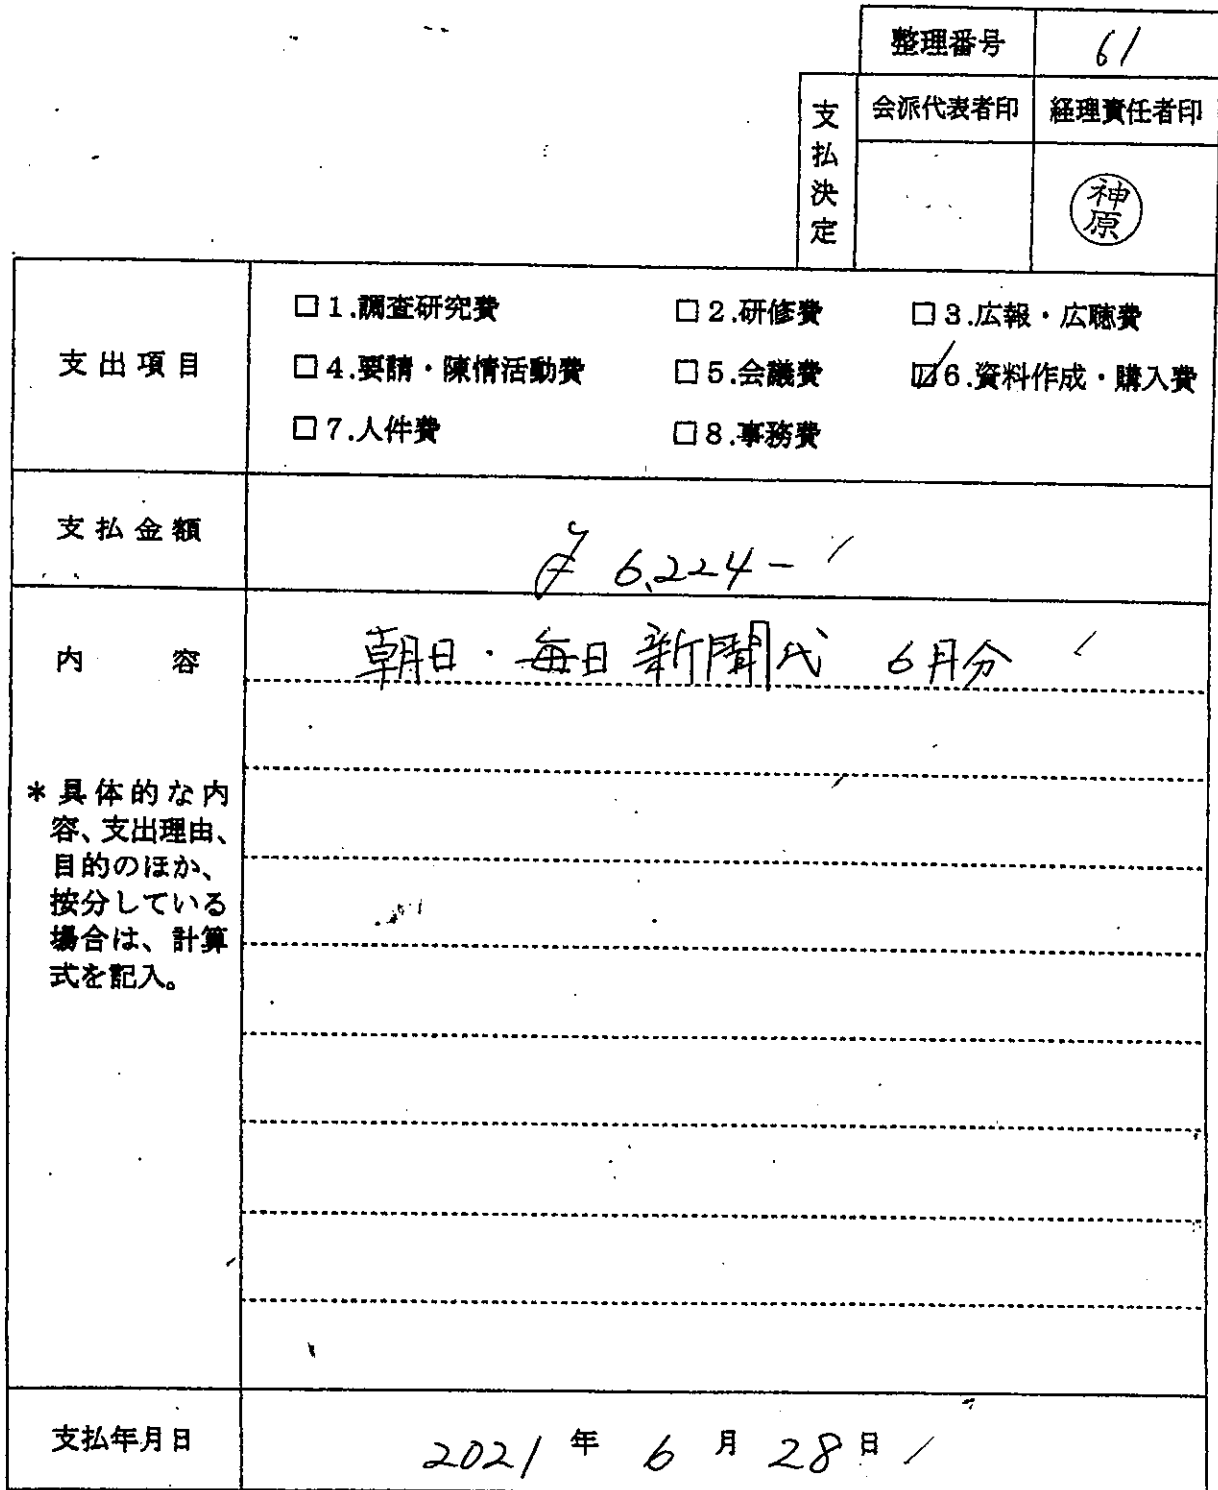 整理番号 61
支払決定 会派代表者印 経理責任者印
神原
支出項目
□1.調査研究費 □2.研修費 □3.広報・広聴費
□4.要請・陳情活動費 □5.会議費 ☑6.資料作成・購入費
□7.人件費 □8.事務費
支払金額
¥6,224-
内容 朝日・毎日新聞代 6月分
*具体的な内
容、支出理由、
目的のほか、
按分している
場合は、計算
式を記入。
支払年月日 2021年6月28日